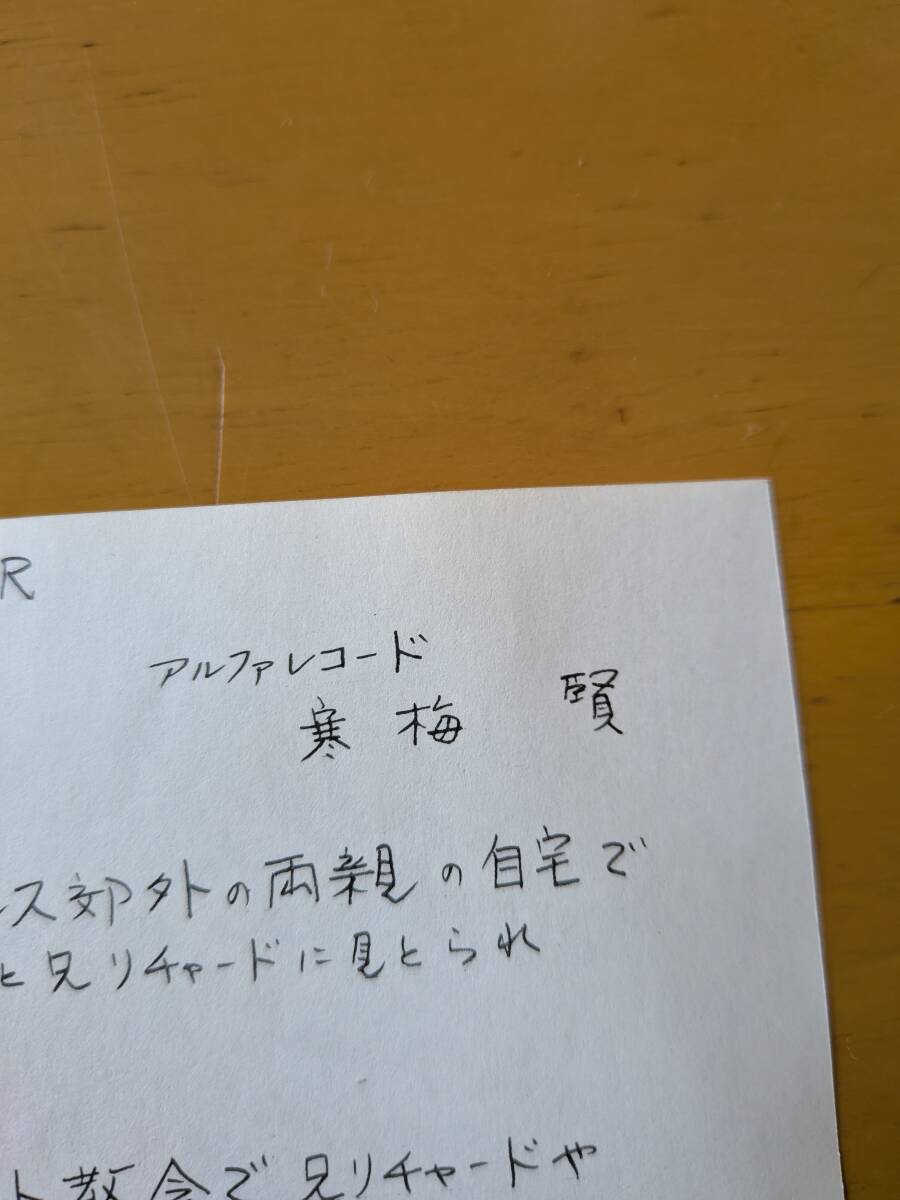 R
アルファレコード
寒梅 賢
ス郊外の両親の自宅で
と兄リチャードに見とられ
ト教会で兄リチャードや